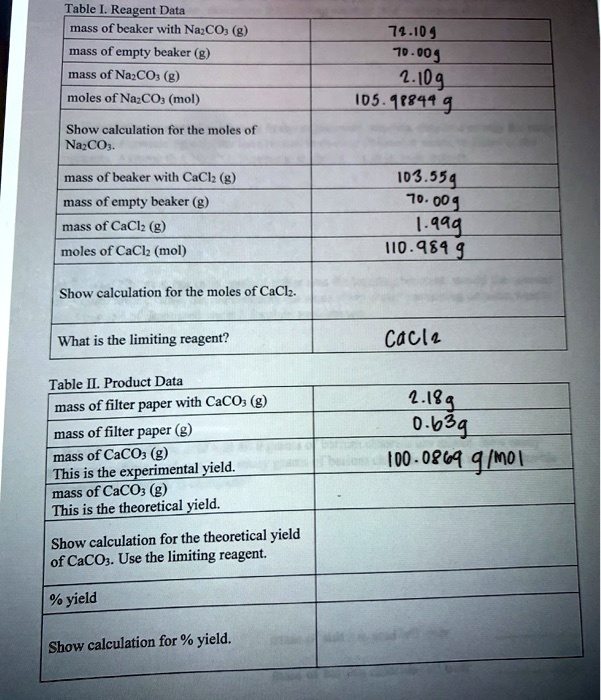 Table I. Reagent Data
mass of beaker with Na2CO3 (g) 72.10g
mass of empty beaker (g) 70.00g
mass of Na2CO3 (g) 2.10g
moles of Na2CO3 (mol) 105.98844 g
Show calculation for the moles of
Na2CO3.
mass of beaker with CaCl2 (g) 103.55g
mass of empty beaker (g) 70.00g
mass of CaCl2 (g) 1.99g
moles of CaCl2 (mol) 110.984 g
Show calculation for the moles of CaCl2.
What is the limiting reagent? CaCl2
Table II. Product Data
mass of filter paper with CaCO3 (g) 2.18g
mass of filter paper (g) 0.63g
mass of CaCO3 (g)
This is the experimental yield. 100.0869 g/mol
mass of CaCO3 (g)
This is the theoretical yield.
Show calculation for the theoretical yield
of CaCO3. Use the limiting reagent.
% yield
Show calculation for % yield.